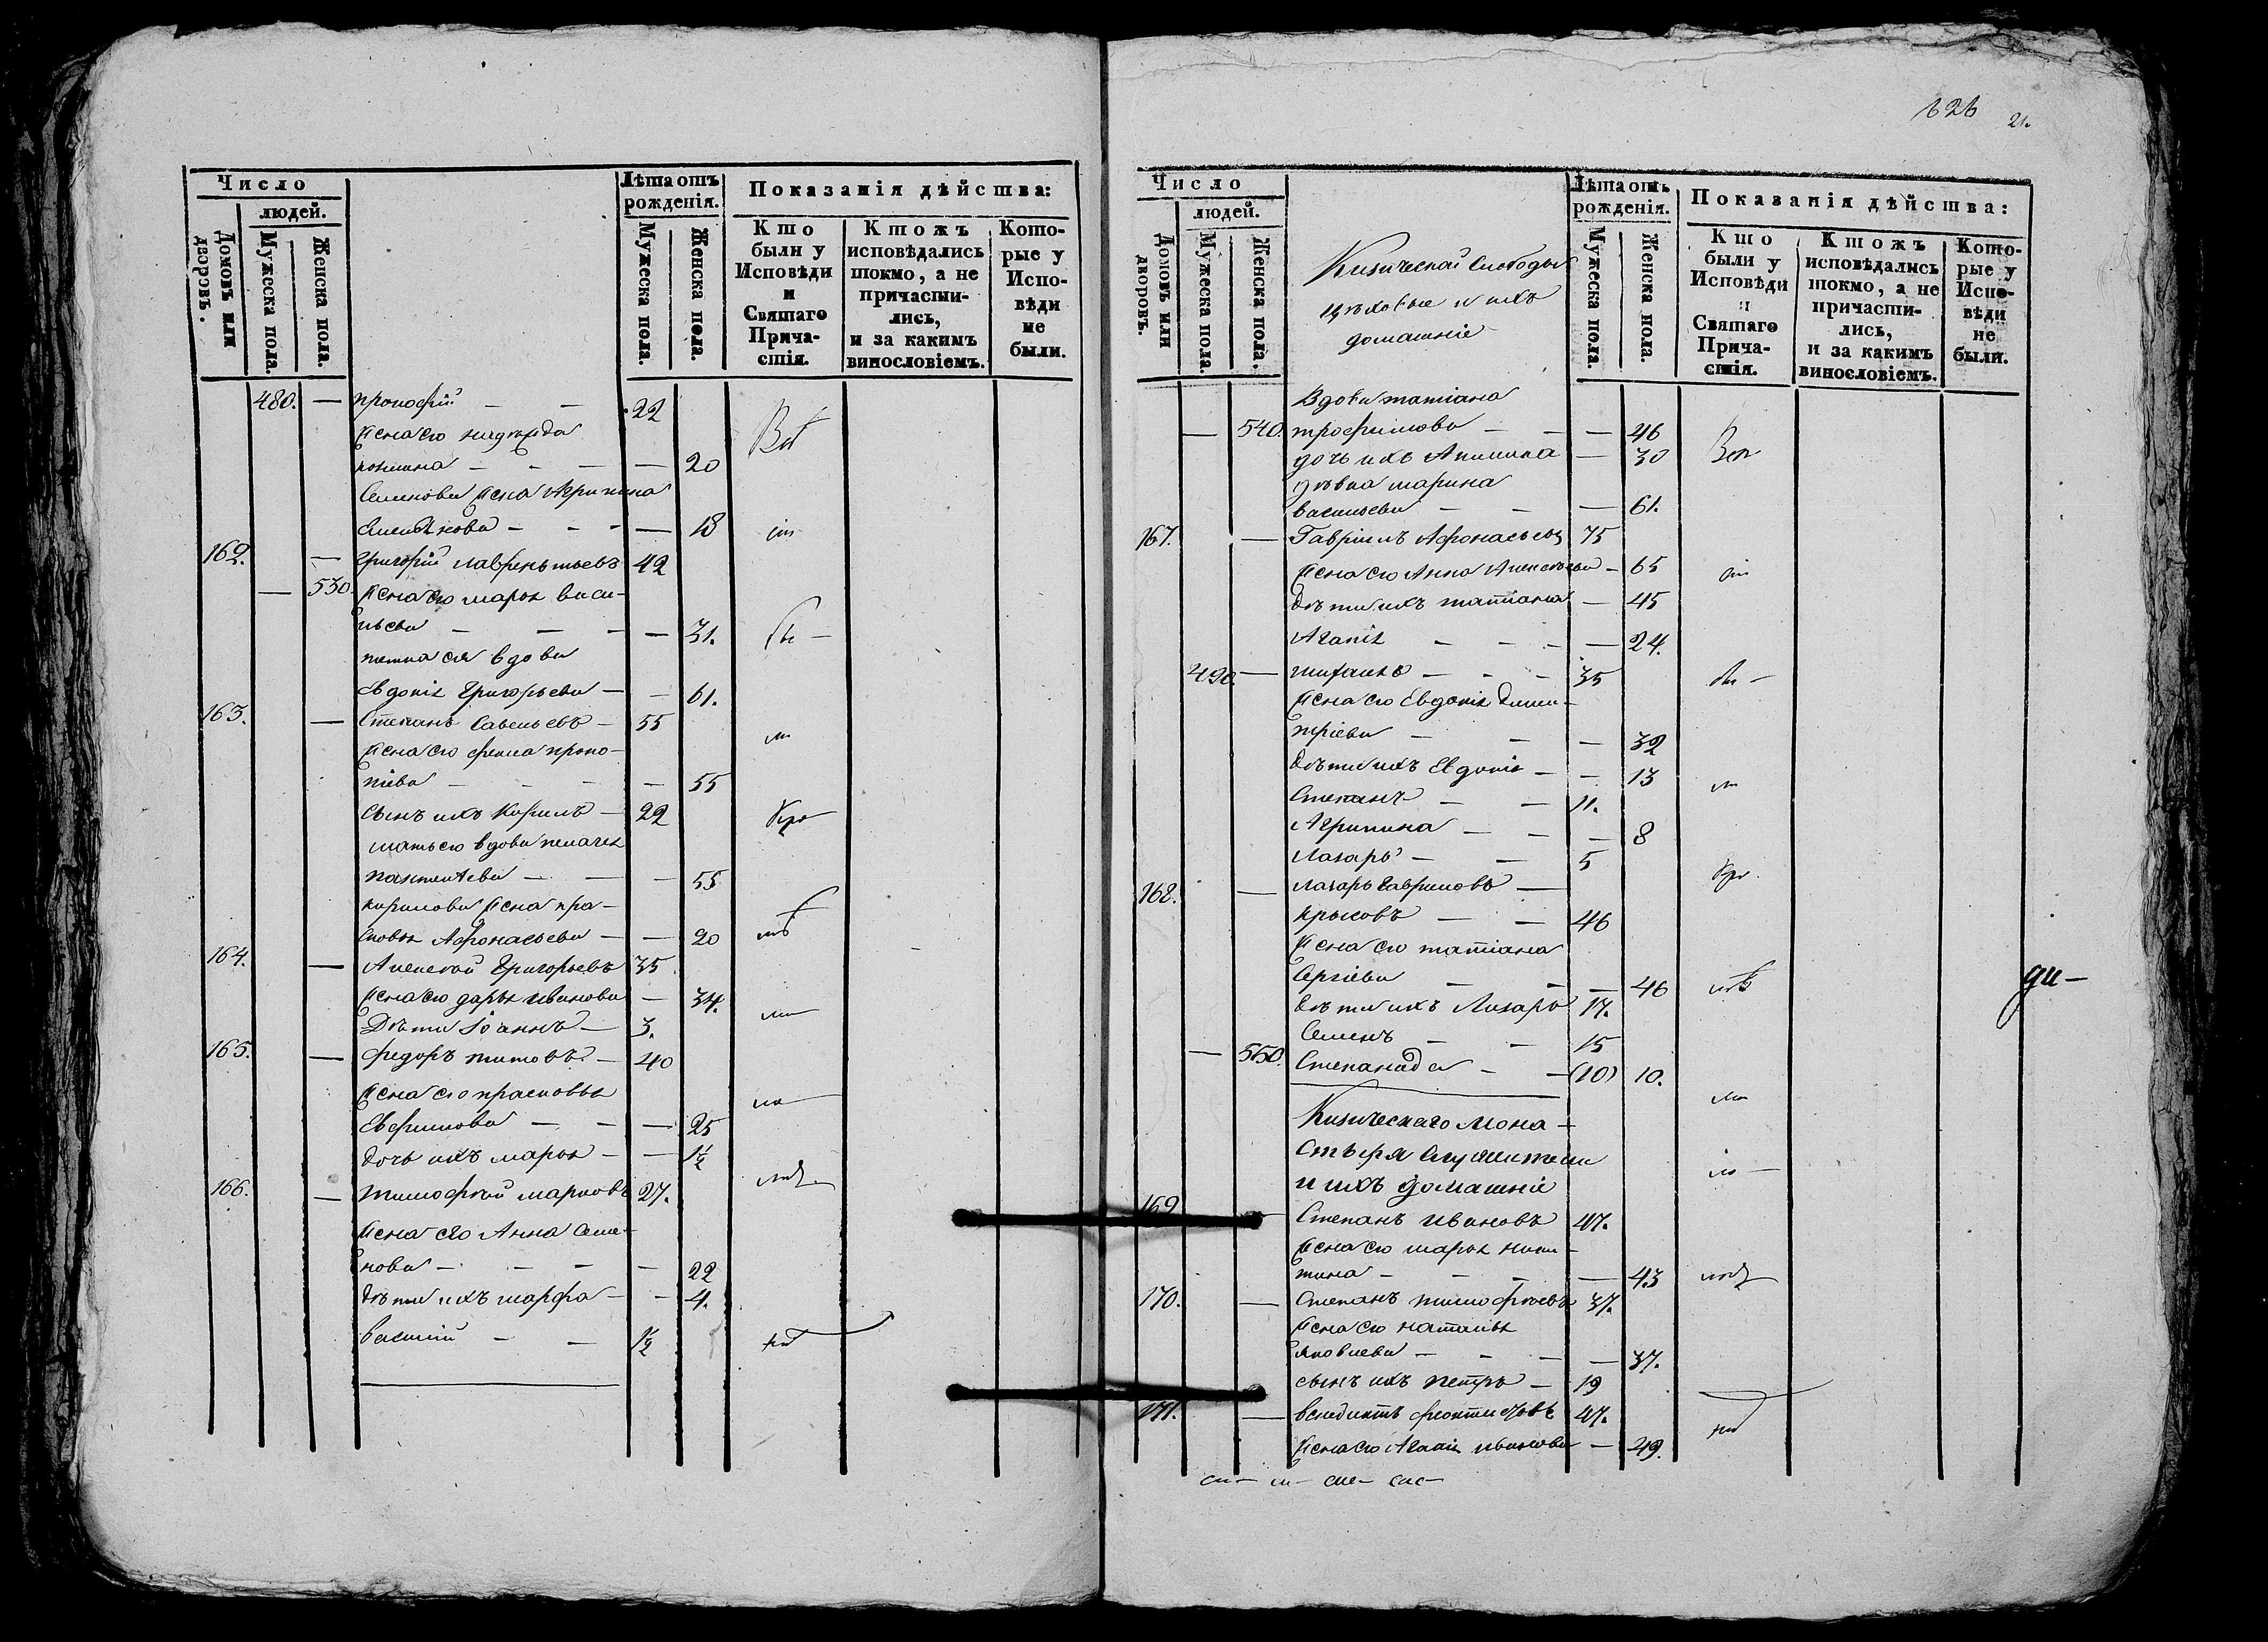 Число
людей.
Домовъ или дворовъ.
Мужеска пола.
Женска пола.
Лѣта отъ рожденія.
Мужеска пола.
Женска пола.
Показанія дѣйства:
Кто были у Исповѣди и Святаго Прича-стія.
Ктожъ исповѣдались токмо, а не причасти-лись, и за какимъ винословіемъ.
Кото-рые у Испо-вѣди не были.
480. — прокофій — — 22
жена его надежда
— — — — 20
Семенова жена Агрипина
— — — 18
162. — Григорій лаврентьевъ 42
— 530. жена его марья васи-
льева — — — — 31.
вдова
Евдокія Григорьева — — 61.
163. — Степанъ Савельевъ — 55
жена его фекла проко-
піева — — — — 55
сынъ ихъ Кирилъ — 22
мать его вдова пелагея
пантелѣева — — — 55
кирилова жена пра-
сковья Афонасьева — — 20
164. — Алексѣй Григорьевъ 35
жена его дарья иванова — 34.
Дѣти Іоаннъ — 3.
165. — федоръ титовъ — 40
жена его прасковья
Евфимова — — — 25
дочь ихъ марья — — 1½
166. — тимофѣй марковъ 27.
жена его Анна Семе-
нова — — — — 22
дѣти ихъ марфа — — 4.
василій — — 1½
626 21.
Число
людей.
Домовъ или дворовъ.
Мужеска пола.
Женска пола.
Кизической Слободы
цѣховые и ихъ
домашніе
Лѣта отъ рожденія.
Мужеска пола.
Женска пола.
Показанія дѣйства:
Кто были у Исповѣди и Святаго Прича-стія.
Ктожъ исповѣдались токмо, а не причасти-лись, и за какимъ винословіемъ.
Кото-рые у Испо-вѣди не были.
Вдова татіана
— 540. трофимова — — — 46
дочь ихъ Акилина — 30
дѣвка марина
васильева — — — 61.
167. — Гавріилъ Афонасьевъ 75
жена его Анна Алексѣева — 65
дѣти ихъ татіана — 45
Агапія — — — — 24.
490. — михаилъ — — — 35
жена его Евдокія дими-
тріева — — — 32
дѣти ихъ Евдокія — — 13
Степанъ — — 11.
Агрипина — — — 8
Лазарь — — 5
168. — лазарь Гавриловъ —
крысовъ — — 46
жена его татіана
Сергіева — — — 46
дѣти ихъ Лазарь 17.
Семенъ — — 15
— 550. Степанида — — (10) 10.
Кизическаго Мона-
стыря служители
и ихъ домашніе
169. — Степанъ ивановъ 47.
жена его марья ники-
тина — — — — 43
170. — Степанъ тимофѣевъ 37.
жена его наталья
яковлева — — — — 37.
сынъ ихъ петръ — 19
171. — венедиктъ феоктистовъ 47.
жена его Агапія иванова — 49.